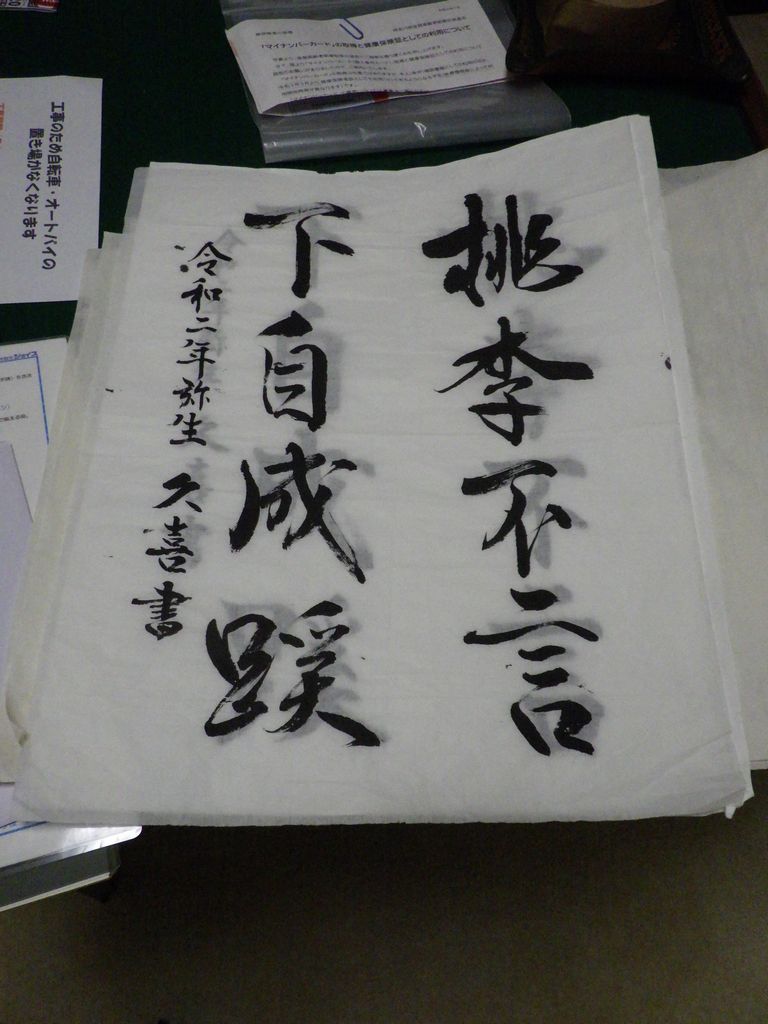 桃李不言
下自成蹊
令和二年弥生 久喜書
「マイナンバーカード」の取得と健康保険証としての利用について
工事のため自転車・オートバイの
置き場がなくなります